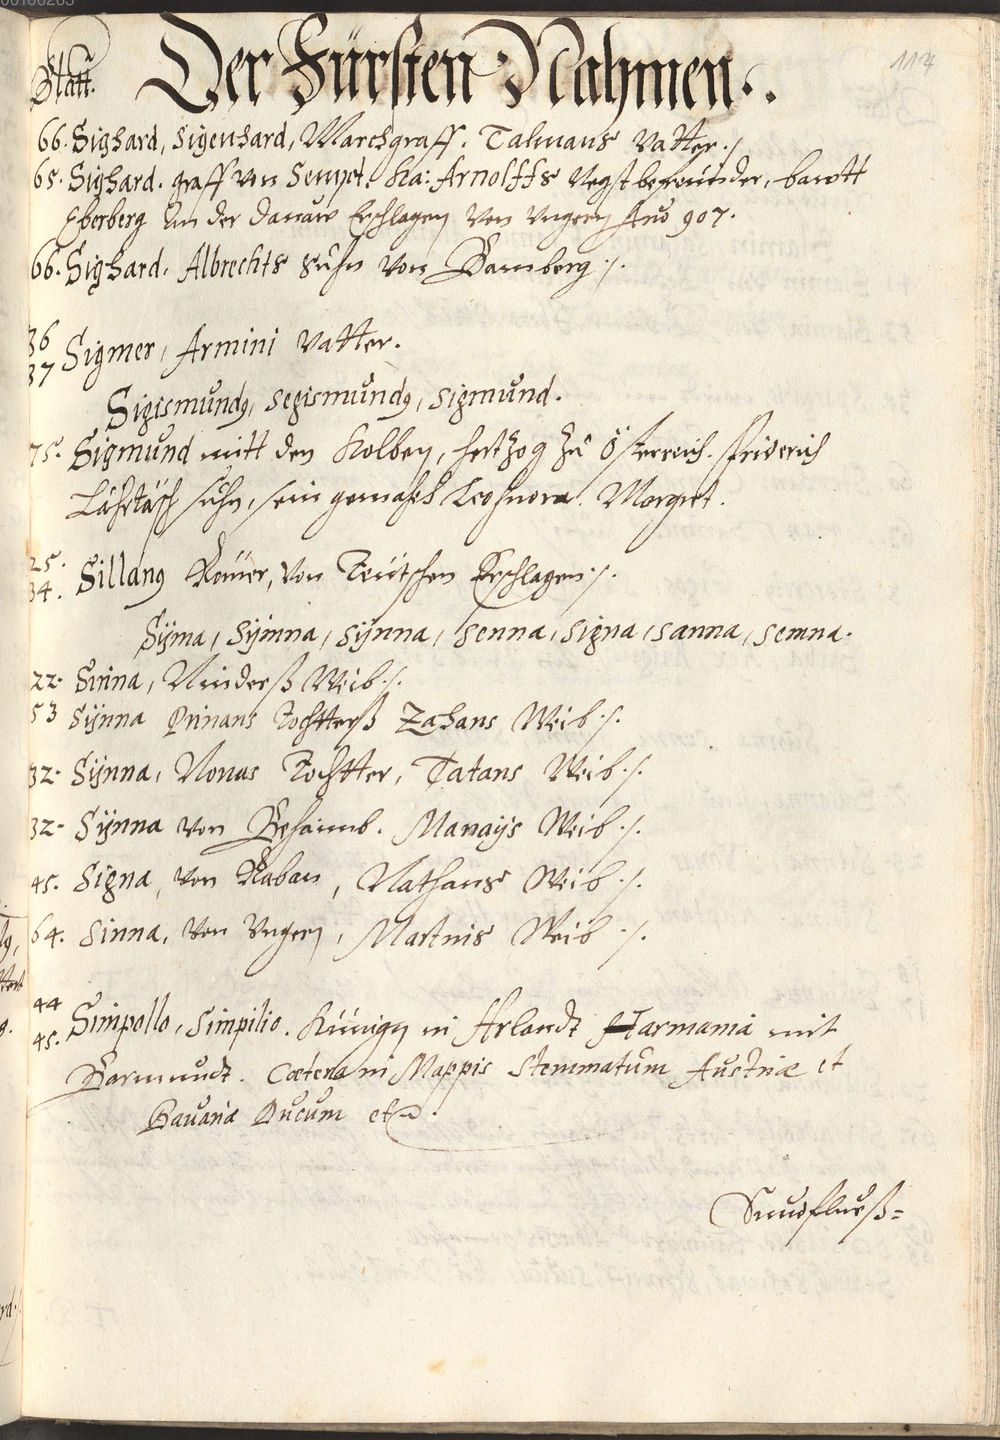 114
Blatt. Der Fürsten Nahmen.
66. Sighard, Sigenhard, Marchgraff. Talmans Vatter ./.
65. Sighard. graff von Sempt. Ka: Arnolffs Negst befreünder, bawtt
Eberberg An der Danaw Erschlagen Von Vngern Ano 907.
66. Sighard. Albrechts Suhn Von Bamberg ./.
36
37 Sigmer, Armini Vatter.
Sigismundg, Segismundg, Sigmund.
75. Sigmund mitt den Kolben, hertzog zu Österreich. Friderich
suhn, sein gemahel Leohnora. Margret.
25.
34. Sillang Römer, Von Teütschen Erschlagen ./.
Sÿma, Sÿmna, Sÿnna, Senna, Signa, Sanna, Semna.
22. Sinna, Weib ./.
53 Sÿnna Prinans Tochtterß Zahans Weib ./.
32. Sÿnna, Nonas Tochtter, Tatans Weib ./.
32. Sÿnna Von Behaimb. Manaÿs Weib ./.
45. Signa, Von Raban, Nathans Weib ./.
64. Sinna, Von Vngern, Martnis Weib ./.
44
45. Simpollo, Simpilio. Künign in Arlandt Harmania mit
Barmundt. Cætera in Mappis Stemmatum Austriæ et
Bavariæ Ducum etc.